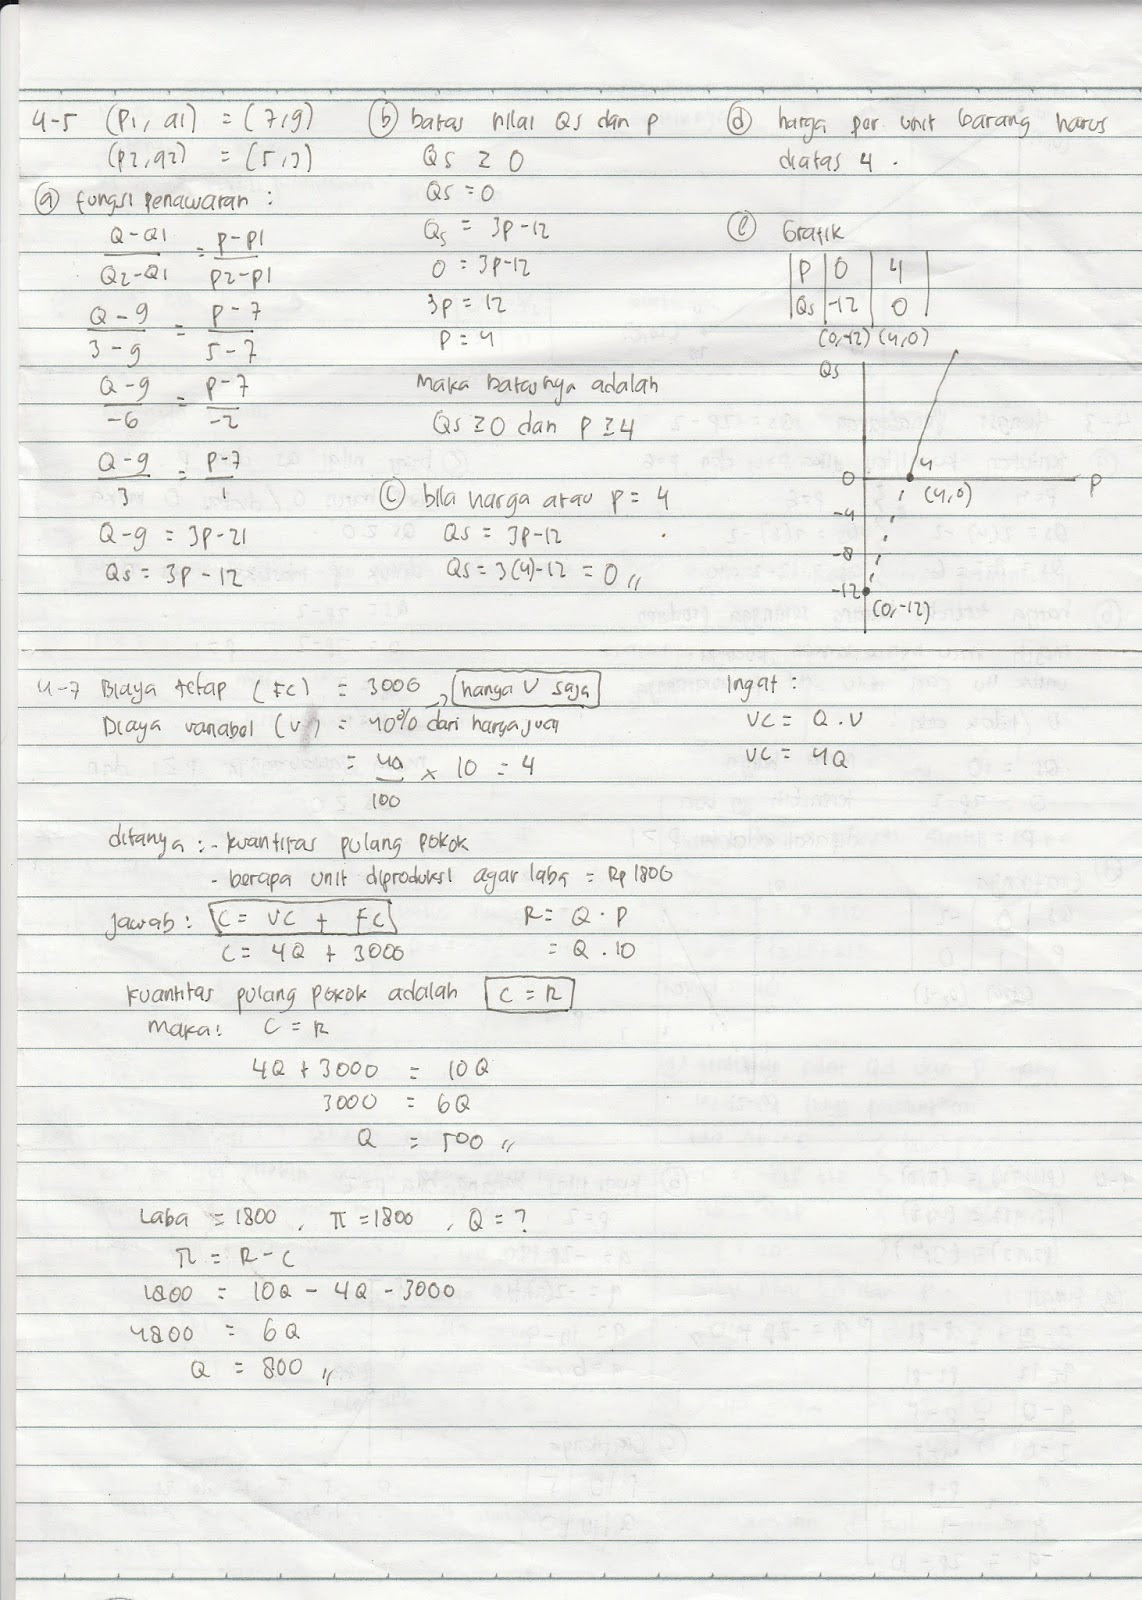 4-5 (P1, Q1) = (7,9)
(P2, Q2) = (5,3)
(a) fungsi penawaran :
Q-Q1 / Q2-Q1 = P-P1 / P2-P1
Q-9 / 3-9 = P-7 / 5-7
Q-9 / -6 = P-7 / -2
Q-9 / 3 = P-7 / 1
Q-9 = 3P-21
Qs = 3P-12
(b) batas nilai Qs dan P
Qs ≥ 0
Qs = 0
Qs = 3P-12
0 = 3P-12
3P = 12
P = 4
Maka batasnya adalah
Qs ≥ 0 dan P ≥ 4
(c) bila harga atau P = 4
Qs = 3P-12
Qs = 3(4)-12 = 0 //
(d) harga per unit barang harus
diatas 4 .
(e) Grafik
P | 0 | 4
Qs | -12 | 0
(0,-12) (4,0)
Qs
4
0
P
(4,0)
-4
-8
-12
(0,-12)
4-7 Biaya tetap (FC) = 3000
Biaya variabel (V) = 40% dari harga jual
, hanya V saja
= 40/100 × 10 = 4
Ingat :
VC = Q . V
VC = 4Q
ditanya : - kuantitas pulang pokok
- berapa unit diproduksi agar laba = Rp 1800
Jawab : C = VC + FC
C = 4Q + 3000
R = Q . P
= Q . 10
kuantitas pulang pokok adalah C = R
maka : C = R
4Q + 3000 = 10Q
3000 = 6Q
Q = 500 //
Laba = 1800 , π = 1800 , Q = ?
π = R - C
1800 = 10Q - 4Q - 3000
4800 = 6Q
Q = 800 //